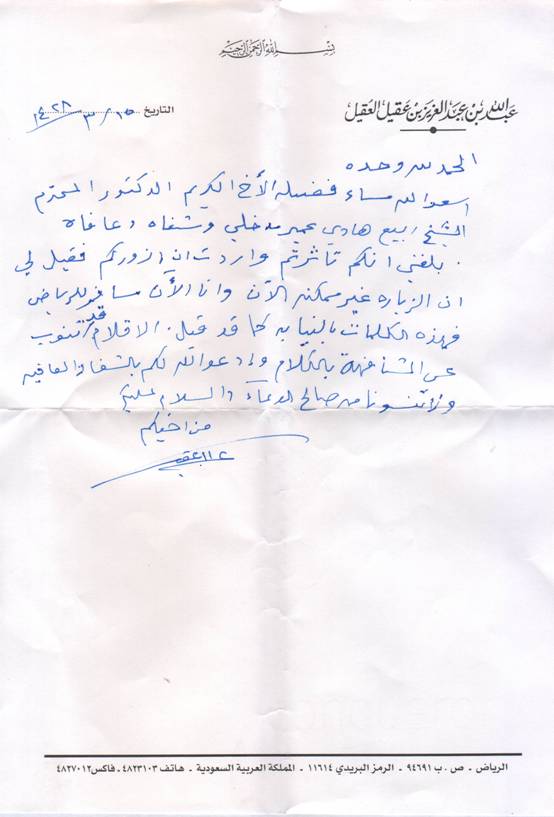 بسم الله الرحمن الرحيم
عبدالله بن عبد العزيز بن عقيل العقيل
التاريخ ١٥ / ٣ / ١٤٢٨
الحمد لله وحده
اسعد الله مساء فضيلة الأخ الكريم الدكتور المحترم
الشيخ ربيع هادي عمير مدخلي وشفاه وعافاه
بلغني انكم تأثرتم واردت ان ازوركم فقيل لي
ان الزياره غير ممكنه الآن وانا الأن مسافر للرياض
فهذه الكلمات بالنيابه كما قد قيل . الاقلام قد تنوب
عن المشافهة بالكلام وادعو الله لكم بالشفاء والعافيه
ولا تنسونا من صالح الدعاء والسلام عليكم
من اخيكم
الرياض - ص . ب ٩٤٦٩١ - الرمز البريدي ١١٦١٤ - المملكة العربية السعودية - هاتف ٤٨٢٣١٠٣ - فاكس ٤٨٢٧٠١٢